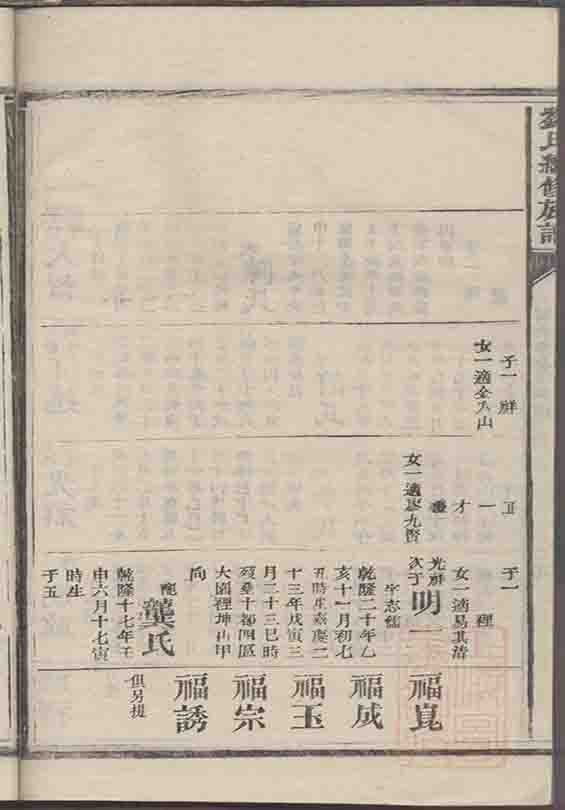 氏續修族譜
子一
女一適金
子
一
才
女一適廖九賢
子一
女一適易其清
光
次子
明一
字志儒
乾隆二十年乙
亥十一月初七
丑時生嘉慶二
十三年戊寅三
月二十三巳時
歿葬十都四區
大園裡坤山甲
向
配
龔氏
乾隆十七年壬
申六月十七寅
時生
子五
福崑
福成
福玉
福宗
福誘
俱另提